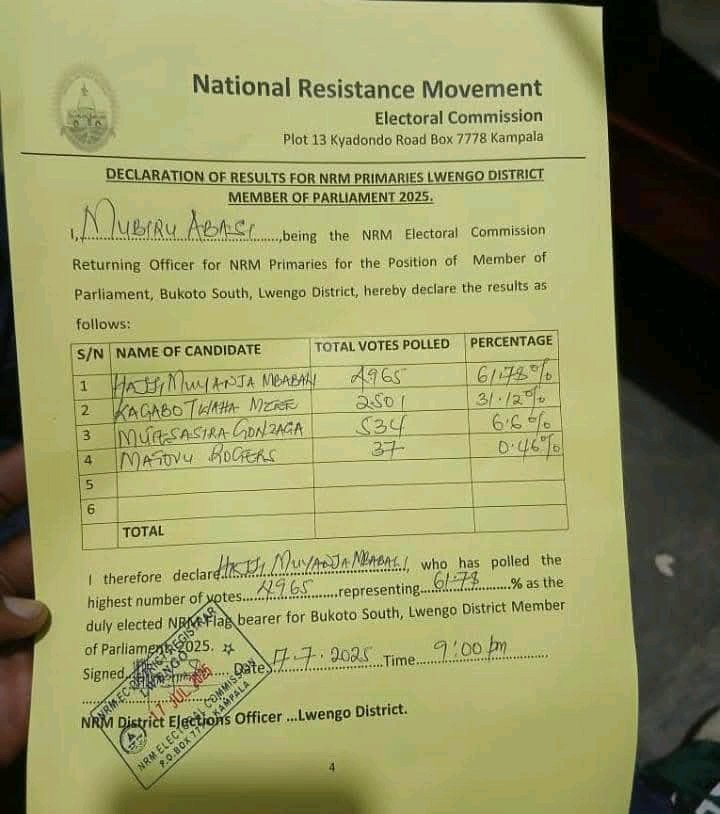 National Resistance Movement
Electoral Commission
Plot 13 Kyadondo Road Box 7778 Kampala
DECLARATION OF RESULTS FOR NRM PRIMARIES LWENGO DISTRICT
MEMBER OF PARLIAMENT 2025.
I, MUBIRU ABASI, being the NRM Electoral Commission
Returning Officer for NRM Primaries for the Position of Member of
Parliament, Bukoto South, Lwengo District, hereby declare the results as
follows:
S/N NAME OF CANDIDATE TOTAL VOTES POLLED PERCENTAGE
1 HAJJI MUYANJA MBABALI 4965 61.78%
2 KAGABO TWAHA MZEE 2501 31.12%
3 GONZAGA 534 6.6%
4 ROGERS 37 0.46%
5
6
TOTAL
I therefore declare HAJJI MUYANJA MBABALI, who has polled the
highest number of votes 4965 representing 61.78 % as the
duly elected NRM Flag bearer for Bukoto South, Lwengo District Member
of Parliament 2025.
Signed Date 17.7.2025 Time 9:00 pm
NRM District Elections Officer ...Lwengo District.
NRM-EC DISTRICT REGISTRAR
LWENGO
17 JUL 2025
NRM ELECTORAL COMMISSION
P.O.BOX 7778 KAMPALA
4